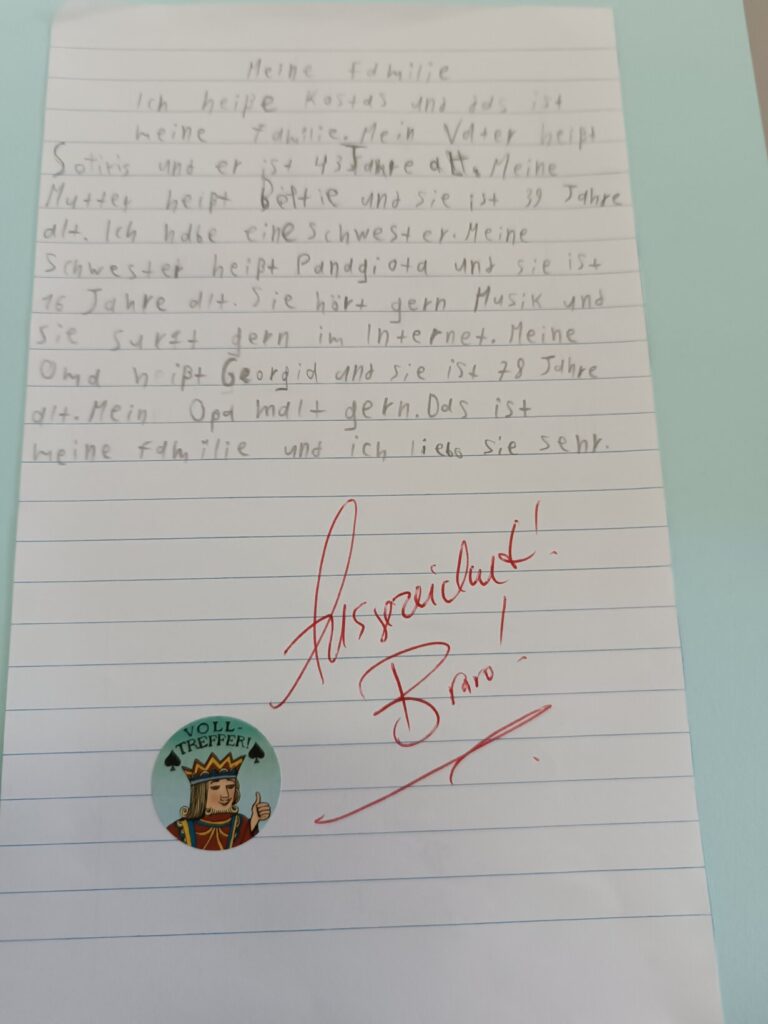 Meine Familie
Ich heiße Kostas und das ist
meine Familie. Mein Vater heißt
Sotiris und er ist 43 Jahre alt. Meine
Mutter heißt und sie ist 39 Jahre
alt. Ich habe eine Schwester. Meine
Schwester heißt Panagiota und sie ist
16 Jahre alt. Sie hört gern Musik und
sie surft gern im Internet. Meine
Oma heißt Georgia und sie ist 78 Jahre
alt. Mein Opa malt gern. Das ist
meine Familie und ich liebe sie sehr.
Ausgezeichnet!
Bravo!
VOLL-
TREFFER!